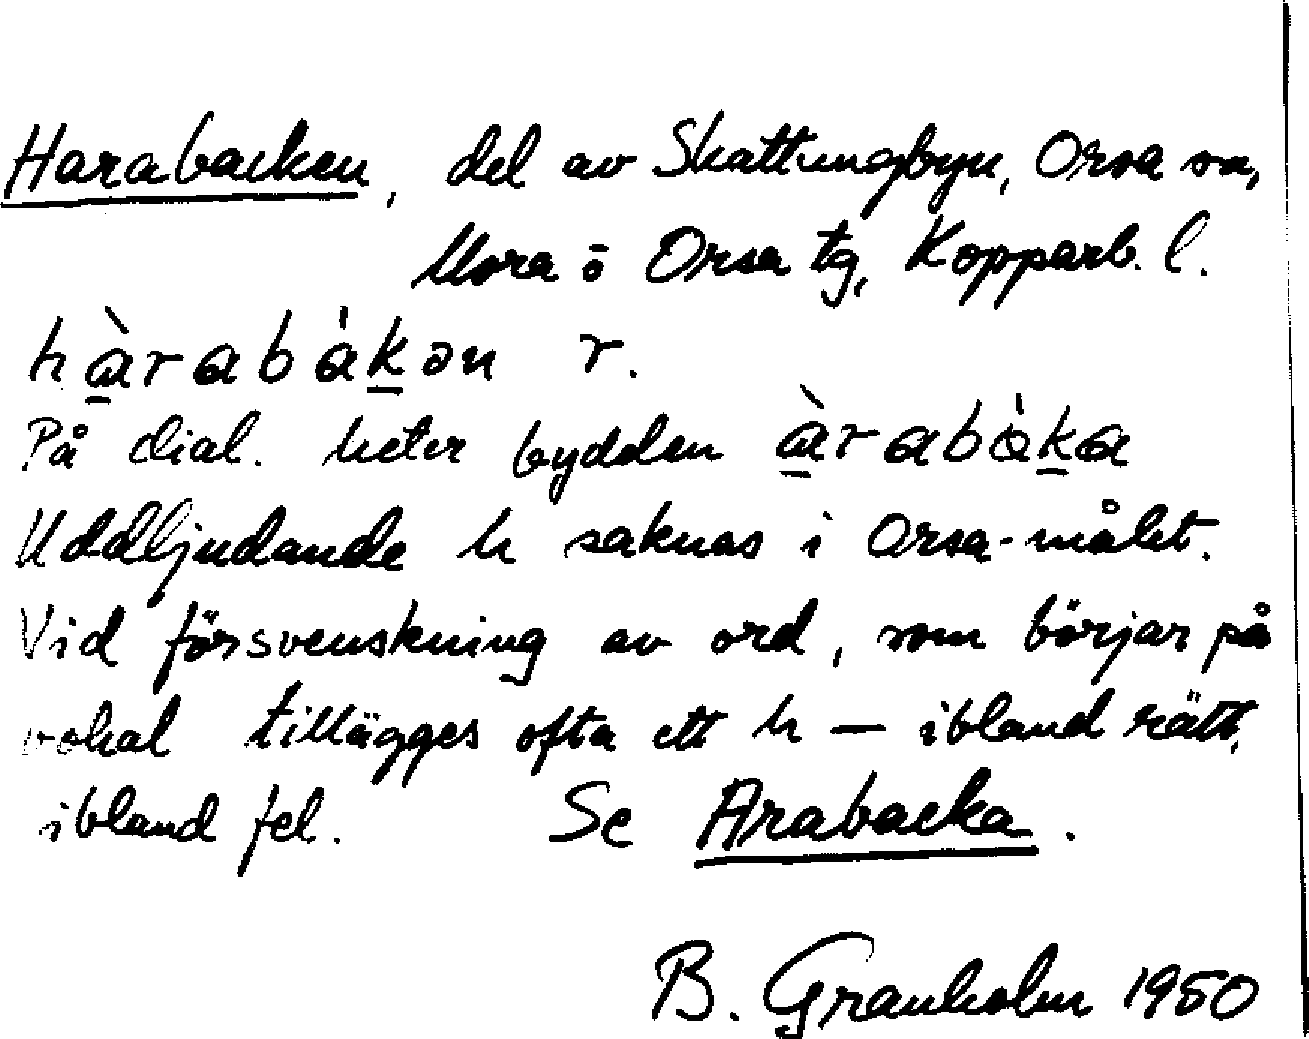 Harabacken, del av Skattungbyn, Orsa sn,
Mora o Orsa tg, Kopparb. l.
hàrabàkən r.
På dial. heter bydelen àrabàka
Uddljudande h saknas i Orsa-målet.
Vid försvenskning av ord, som börjar på
vokal tillägges ofta ett h — ibland rätt,
ibland fel. Se Arabacka.
B. Granholm 1950